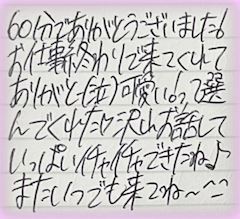 60分でありがとうございました!
お仕事終わりで来てくれて
ありがと(泣)可愛いって選
んでくれた!?沢山お話して
いっぱいイチャイチャできたね♪
またいつでも来てね〜^^